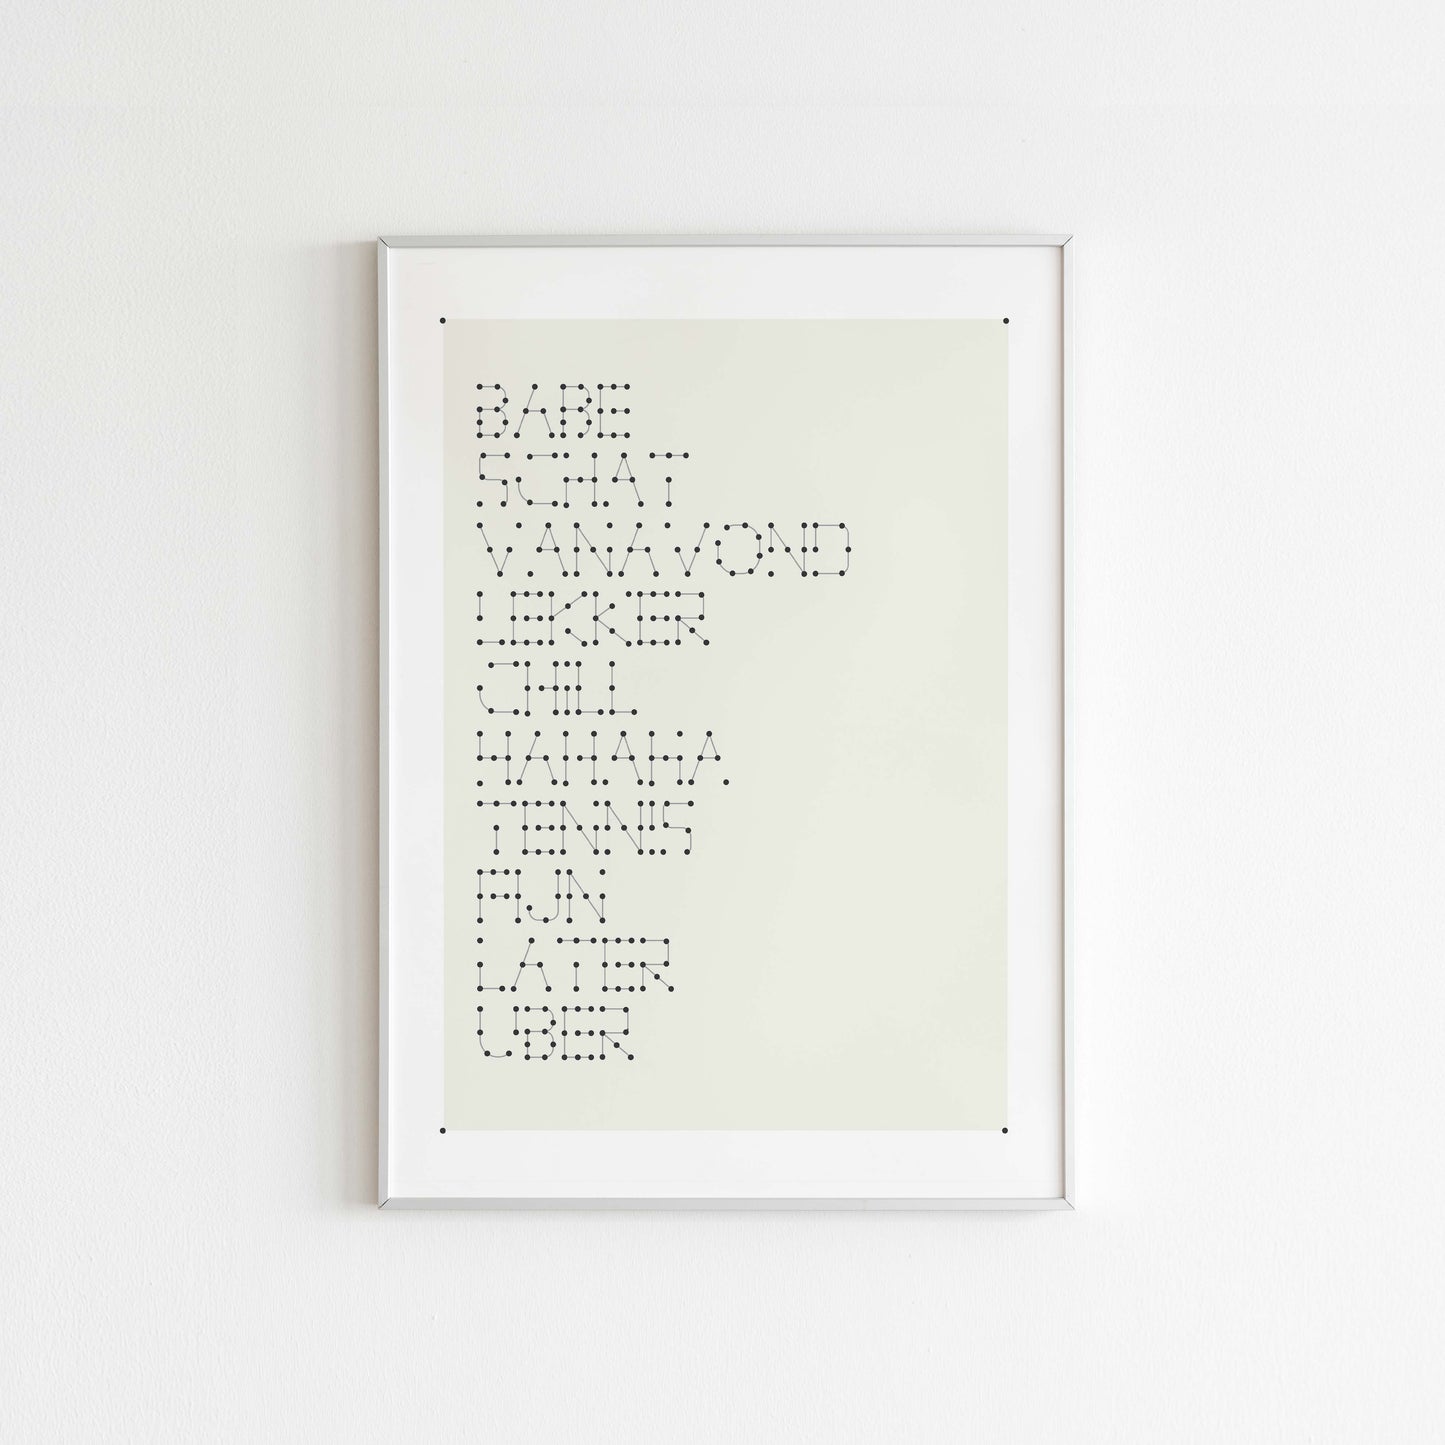 BABE
SCHAT
VANAVOND
LEKKER
CHILL
HAHAHA
TENNIS
FIJN
LATER
UBER